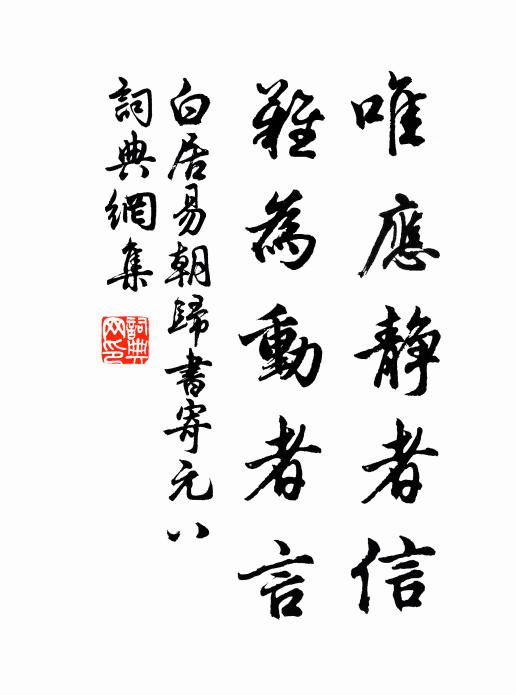 唯應静者信
難為動者言
白居易朝歸書寄元八
詞典網集
詞典網印